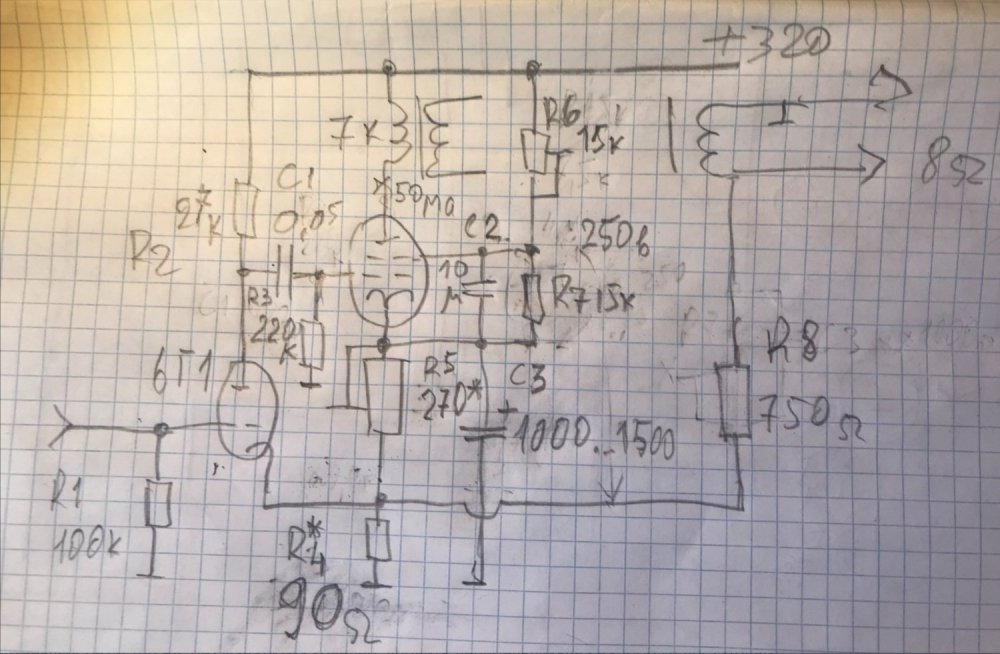 +320
R6
15к
7к
I
8Ω
C1
0,05
50ма
27
к
R2
C2
250в
10
м
R3
220
к
R7 15к
R8
750Ω
6Г1
R5
270*
C3
+
1000...1500
R1
100к
R4*
90Ω